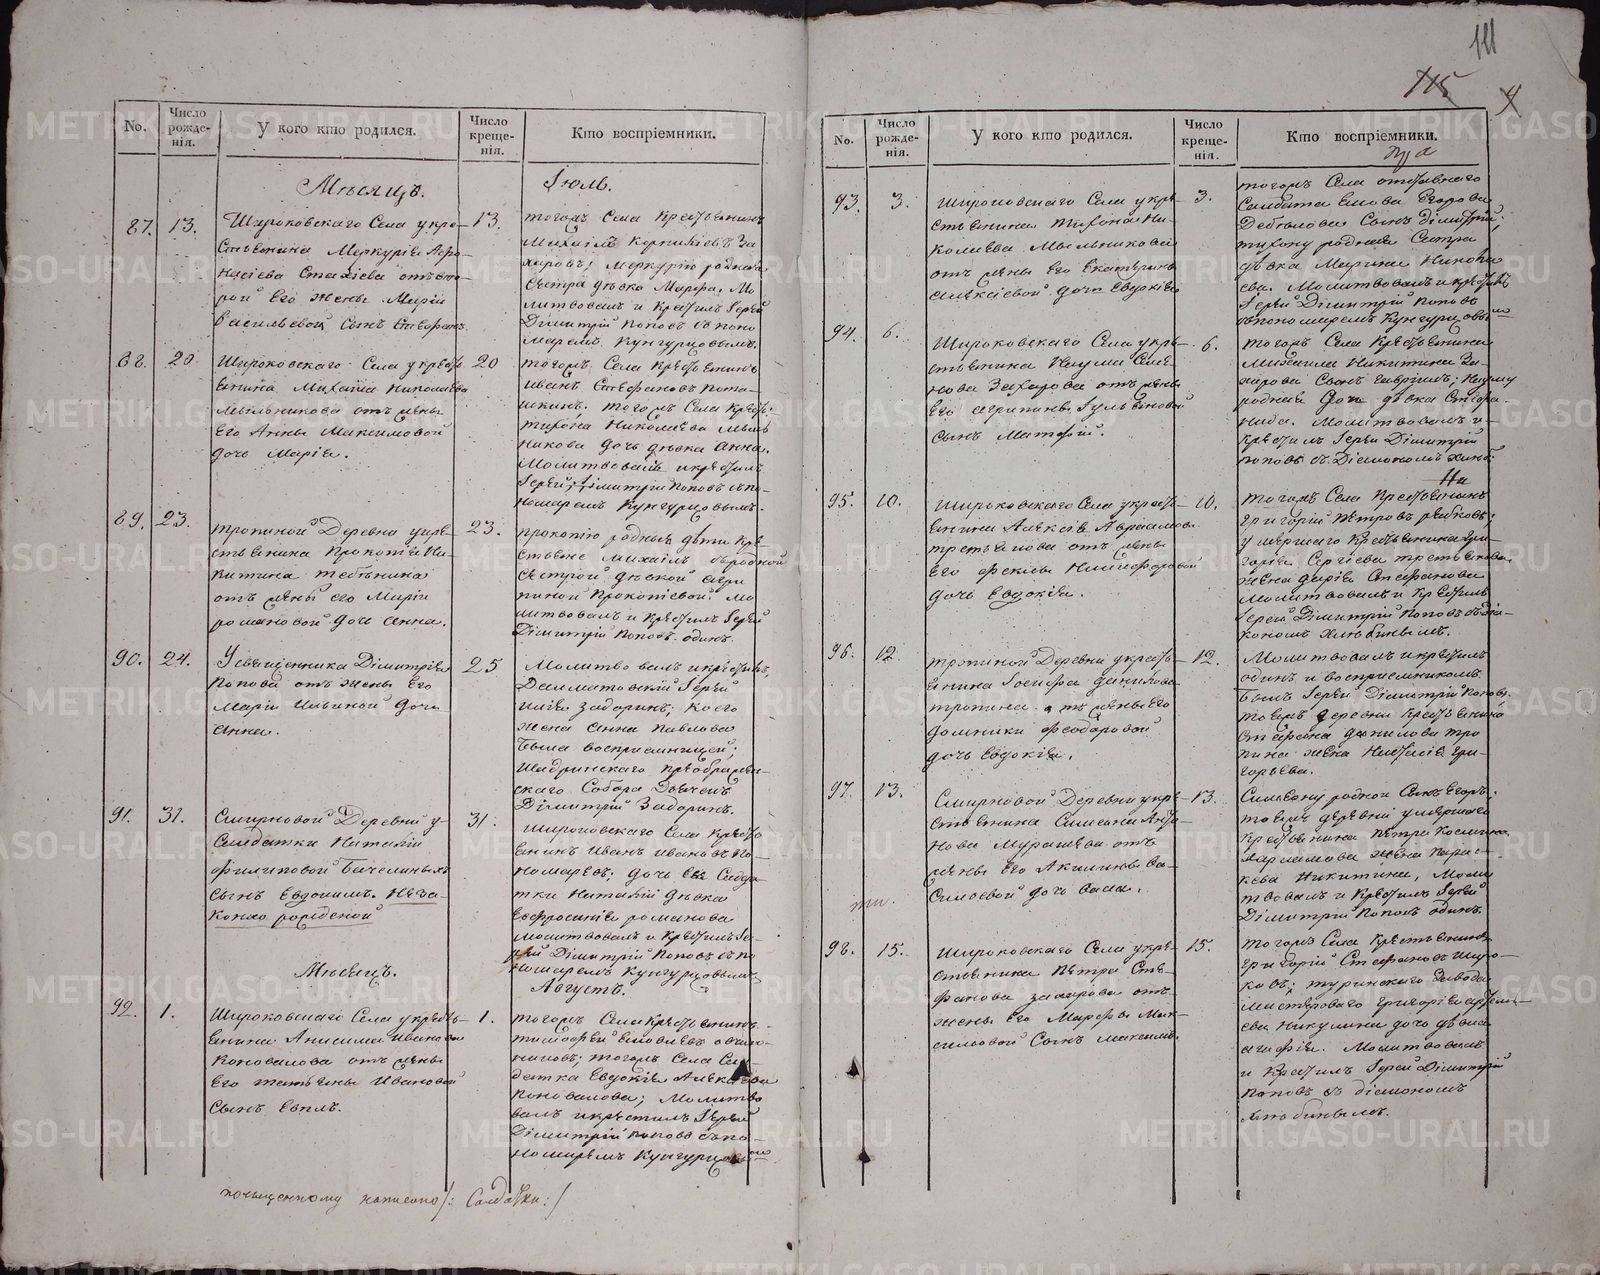 111
115
No.
Число рожде-нія.
У кого кто родился.
Число креще-нія.
Кто воспріемники.
Мѣсяцъ.
Іюль.
87. 13.
Широковскаго Села у кре-
стьянина Меркурія Афо-
насіева
рой его жены Маріи
Васильевой сынъ Стефанъ.
13.
тогожъ Села крестьянинъ
Михаилъ Корнильевъ За-
харовъ; Меркурію родная
сестра дѣвка Марфа. Мо-
литвовалъ и крестилъ Іерей
Димитрій Поповъ съ поно-
маремъ Кунгурцовымъ.
88. 20
Широковскаго Села у кресть-
янина Михаила Николаева
Мыльникова отъ жены
его Анны Максимовой
дочь Марія.
20
тогожъ Села крестьянинъ
Иванъ Стефановъ
тогожъ Села крест.
Тихона Николаева Мыль-
никова дочь дѣвка Анна.
Молитвовалъ и крестилъ
Іерей Димитрій Поповъ съ по-
номаремъ Кунгурцовымъ.
89. 23.
Тропиной Деревни у кре-
стьянина Прокопія Ни-
китина
отъ жены его Маріи
Романовой дочь Анна.
23.
Прокопію родныя дѣти кре-
стьяне Михаилъ съ родной
сестрой дѣвкой Агри-
пиной Прокопіевой. Мо-
литвовалъ и крестилъ Іерей
Димитрій Поповъ одинъ.
90. 24.
У священника Димитрія
Попова отъ жены его
Маріи Ильиной дочь
Анна.
25
Молитвовалъ и крестилъ,
Далматовскій Іерей
Илія Задоринъ; коего
жена Анна Павлова
была воспріемницей;
Шадринскаго Преображен-
скаго Собора Дьячекъ
Димитрій Задоринъ.
91. 31.
Смирновой Деревни у
Солдатки Наталіи
Филиповой
сынъ Евдокимъ. Неза-
конно рожденой
31.
Широковскаго Села кресть-
янинъ Иванъ Ивановъ По-
номаревъ; дочь ея Солда-
тки Наталіи дѣвка
Евфросинія Романова
Молитвовалъ и крестилъ Іе-
рей Димитрій Поповъ съ по-
номаремъ Кунгурцовымъ
Мѣсяцъ.
Августъ.
92. 1.
Широковскаго Села у кресть-
янина Анисима Иванова
Коновалова отъ жены
его Татьяны Ивановой
сынъ Евплъ.
1.
тогожъ Села крестьянинъ
Тимофей
тогожъ Села Сол-
датка Евдокія Алексѣева
Коновалова; Молитво-
валъ и крестилъ Іерей
Димитрій Поповъ съ по-
номаремъ Кунгурцовымъ
почищенному написано /: Солдатки :/
No.
Число рожде-нія.
У кого кто родился.
Число креще-нія.
Кто воспріемники.
93. 3.
Широковскаго Села у кре-
стьянина Тихона Ни-
колаева Мыльникова
отъ жены его Екатерины
Алексіевой дочь Евдокія
3.
тогожъ Села отставнаго
Солдата Егорова
сынъ Димитрій;
Тихону родная Сестра
дѣвка Марина Никола-
ева. Молитвовалъ и крестилъ
Іерей Димитрій Поповъ
съ пономаремъ Кунгурцовымъ
94. 6.
Широковскаго Села у кре-
стьянина Наума Семе-
нова Захарова отъ жены
его Агрипины Гульяновой
сынъ Матфій.
6.
тогожъ Села крестьянина
Михаила Никитина За-
харова сынъ Гавріилъ; Науму
родная дочь дѣвка Степа-
нида. Молитвовалъ и
крестилъ Іерей Димитрій
Поповъ съ Діакономъ
95. 10.
Широковскаго Села у кресть-
янина Алексія Авраамова
Третьякова отъ жены
его Феклы Никифоровой
дочь Евдокія.
10.
тогожъ Села крестьянинъ
Григорій Петровъ
умершаго крестьянина Гри-
горія Сергіева Третьякова
жена Дарія Стефанова
Молитвовалъ и крестилъ
Іерей Димитрій Поповъ съ діа-
кономъ Хлыбинымъ.
96. 12
Тропиной Деревни у кресть-
янина Іосифа Данилова
Тропина отъ жены его
Домники Феодоровой
дочь Евдокія.
12.
Молитвовалъ и крестилъ
одинъ и воспріемникомъ
былъ Іерей Димитрій Поповъ,
тоежъ деревни крестьянина
Стефана Данилова Тро-
пина жена Наталія Гри-
горьева.
97. 13.
Смирновой Деревни у кре-
стьянина Симеана Анто-
нова Мурашева отъ
жены его Акилины Ва-
силіевой дочь Васса.
13.
Симеону родной сынъ Егоръ;
тоежъ деревни умершаго
крестьянина Петра Космина
Варламова жена Парас-
кева Никитина, Моли-
твовалъ и крестилъ Іерей
Димитрій Поповъ одинъ.
98. 15.
Широковскаго Села у кре-
стьянина Петра Сте-
фанова Захарова отъ
жены его Марфы Мак-
симовой сынъ Максимъ.
15.
тогожъ Села крестьянинъ
Григорій Стефановъ Широ-
ковъ; Туринскаго Завода
Никулина дочь дѣвка
Агафія. Молитвовалъ
и крестилъ Іерей Димитрій
Поповъ съ діакономъ
Хлыбинымъ.
METRIKI.GASO-URAL.RU